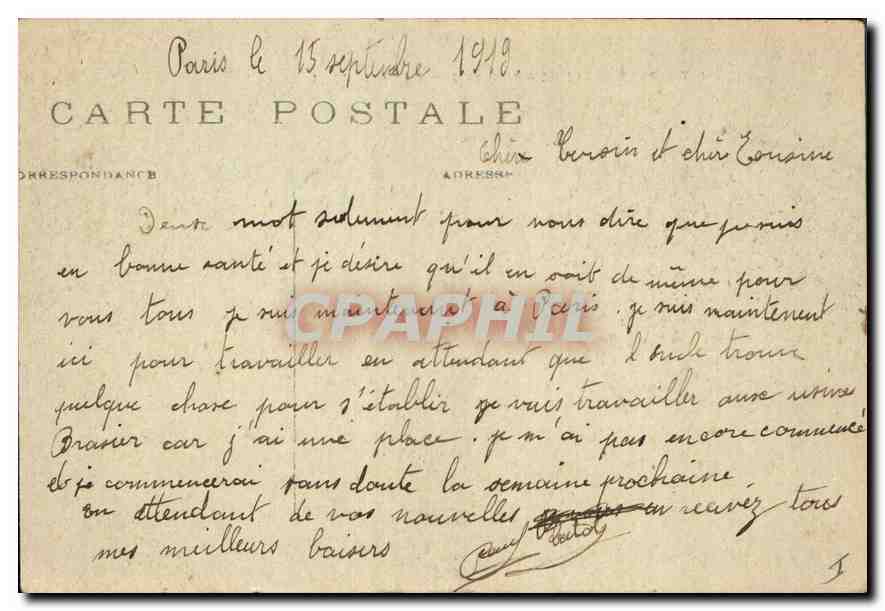 Paris le 15 septembre 1919.
CARTE POSTALE
cher Cousin et chèr Cousine
ORRESPONDANCE ADRESSE
Deux mot seulement pour vous dire que je suis
en bonne santé et je désire qu'il en soit de même pour
vous tous je suis maintenant à Paris. je suis maintenent
ici pour travailler en attendant que l'oncle trouve
quelque chose pour s'établir je vais travailler aux usines
Brasier car j'ai une place. je n'ai pas encore commencé
et je commencerai sans doute la semaine prochaine.
en attendant de vos nouvelles recevez tous
mes meilleurs baisers
I
CPAPHIL